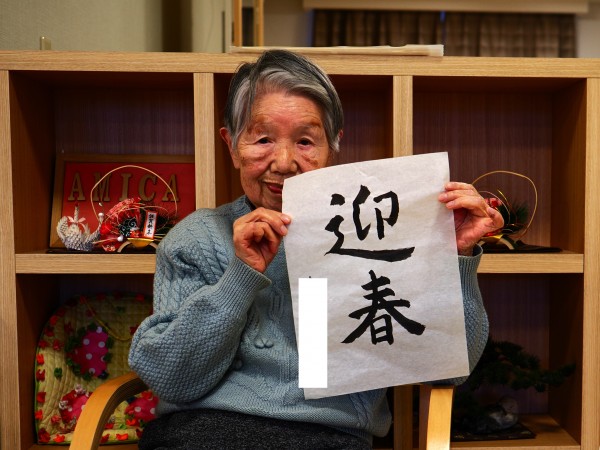 迎
春
AMICA